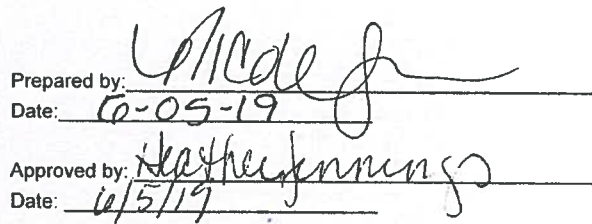 Prepared by:
Date: 6-05-19
Approved by: Heather Jennings
Date: 6/5/19